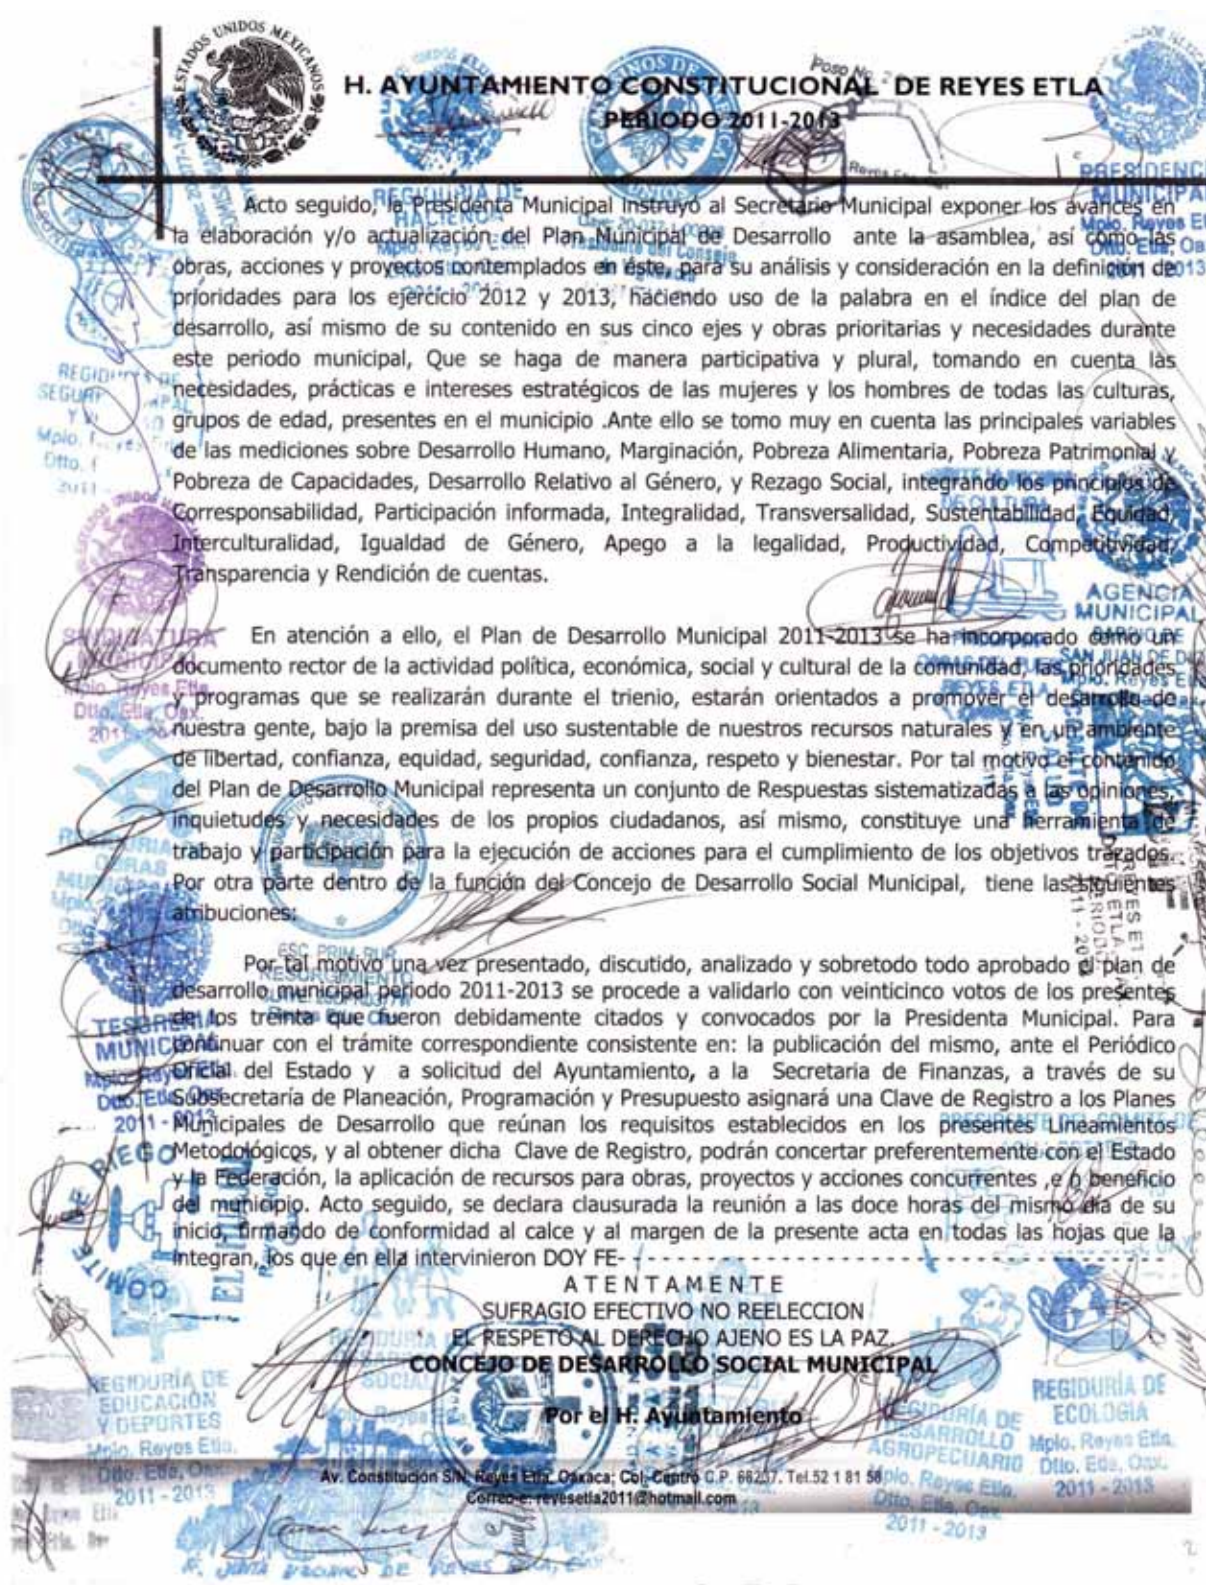 ESTADOS UNIDOS MEXICANOS
H. AYUNTAMIENTO CONSTITUCIONAL DE REYES ETLA
PERIODO 2011-2013
Acto seguido, la Presidenta Municipal instruyó al Secretario Municipal exponer los avances en
la elaboración y/o actualización del Plan Municipal de Desarrollo ante la asamblea, así como las
obras, acciones y proyectos contemplados en éste, para su análisis y consideración en la definición de
prioridades para los ejercicio 2012 y 2013, haciendo uso de la palabra en el índice del plan de
desarrollo, así mismo de su contenido en sus cinco ejes y obras prioritarias y necesidades durante
este periodo municipal, Que se haga de manera participativa y plural, tomando en cuenta las
necesidades, prácticas e intereses estratégicos de las mujeres y los hombres de todas las culturas,
grupos de edad, presentes en el municipio .Ante ello se tomo muy en cuenta las principales variables
de las mediciones sobre Desarrollo Humano, Marginación, Pobreza Alimentaria, Pobreza Patrimonial y
Pobreza de Capacidades, Desarrollo Relativo al Género, y Rezago Social, integrando los principios de
Corresponsabilidad, Participación informada, Integralidad, Transversalidad, Sustentabilidad, Equidad,
Interculturalidad, Igualdad de Género, Apego a la legalidad, Productividad, Competitividad,
Transparencia y Rendición de cuentas.
En atención a ello, el Plan de Desarrollo Municipal 2011-2013 se ha incorporado como un
documento rector de la actividad política, económica, social y cultural de la comunidad, las prioridades
y programas que se realizarán durante el trienio, estarán orientados a promover el desarrollo de
nuestra gente, bajo la premisa del uso sustentable de nuestros recursos naturales y en un ambiente
de libertad, confianza, equidad, seguridad, confianza, respeto y bienestar. Por tal motivo el contenido
del Plan de Desarrollo Municipal representa un conjunto de Respuestas sistematizadas a las opiniones,
inquietudes y necesidades de los propios ciudadanos, así mismo, constituye una herramienta de
trabajo y participación para la ejecución de acciones para el cumplimiento de los objetivos trazados.
Por otra parte dentro de la función del Concejo de Desarrollo Social Municipal, tiene las siguientes
atribuciones:
Por tal motivo una vez presentado, discutido, analizado y sobretodo todo aprobado el plan de
desarrollo municipal periodo 2011-2013 se procede a validarlo con veinticinco votos de los presentes
de los treinta que fueron debidamente citados y convocados por la Presidenta Municipal. Para
continuar con el trámite correspondiente consistente en: la publicación del mismo, ante el Periódico
Oficial del Estado y a solicitud del Ayuntamiento, a la Secretaria de Finanzas, a través de su
Subsecretaría de Planeación, Programación y Presupuesto asignará una Clave de Registro a los Planes
Municipales de Desarrollo que reúnan los requisitos establecidos en los presentes Lineamientos
Metodológicos, y al obtener dicha Clave de Registro, podrán concertar preferentemente con el Estado
y la Federación, la aplicación de recursos para obras, proyectos y acciones concurrentes ,e n beneficio
del municipio. Acto seguido, se declara clausurada la reunión a las doce horas del mismo día de su
inicio, firmando de conformidad al calce y al margen de la presente acta en todas las hojas que la
integran, los que en ella intervinieron DOY FE- - - - - - - - - - - - - - - - - - - - - - - - - - - - - - - - - -
A T E N T A M E N T E
SUFRAGIO EFECTIVO NO REELECCION
EL RESPETO AL DERECHO AJENO ES LA PAZ.
CONCEJO DE DESARROLLO SOCIAL MUNICIPAL
Por el H. Ayuntamiento
Av. Constitución S/N, Reyes Etla, Oaxaca; Col. Centro C.P. 68237. Tel.52 1 81 58
Correo-e: reyesetla2011@hotmail.com
REGIDURIA DE
HACIENDA
AGENCIA
MUNICIPAL
TESORERIA
MUNICIPAL
Mpio. Reyes Etla
Dtto. Etla, Oax.
2011 - 2013
COMITE DE RIEGO
REGIDURÍA DE
EDUCACIÓN
Y DEPORTES
Mpio. Reyes Etla,
Dtto. Etla, Oax.
2011 - 2013
REGIDURÍA DE
DESARROLLO
AGROPECUARIO
Mpio. Reyes Etla,
Dtto. Etla, Oax.
2011 - 2013
REGIDURÍA DE
ECOLOGIA
Mpio. Reyes Etla,
Dtto. Etla, Oax.
2011 - 2013
2